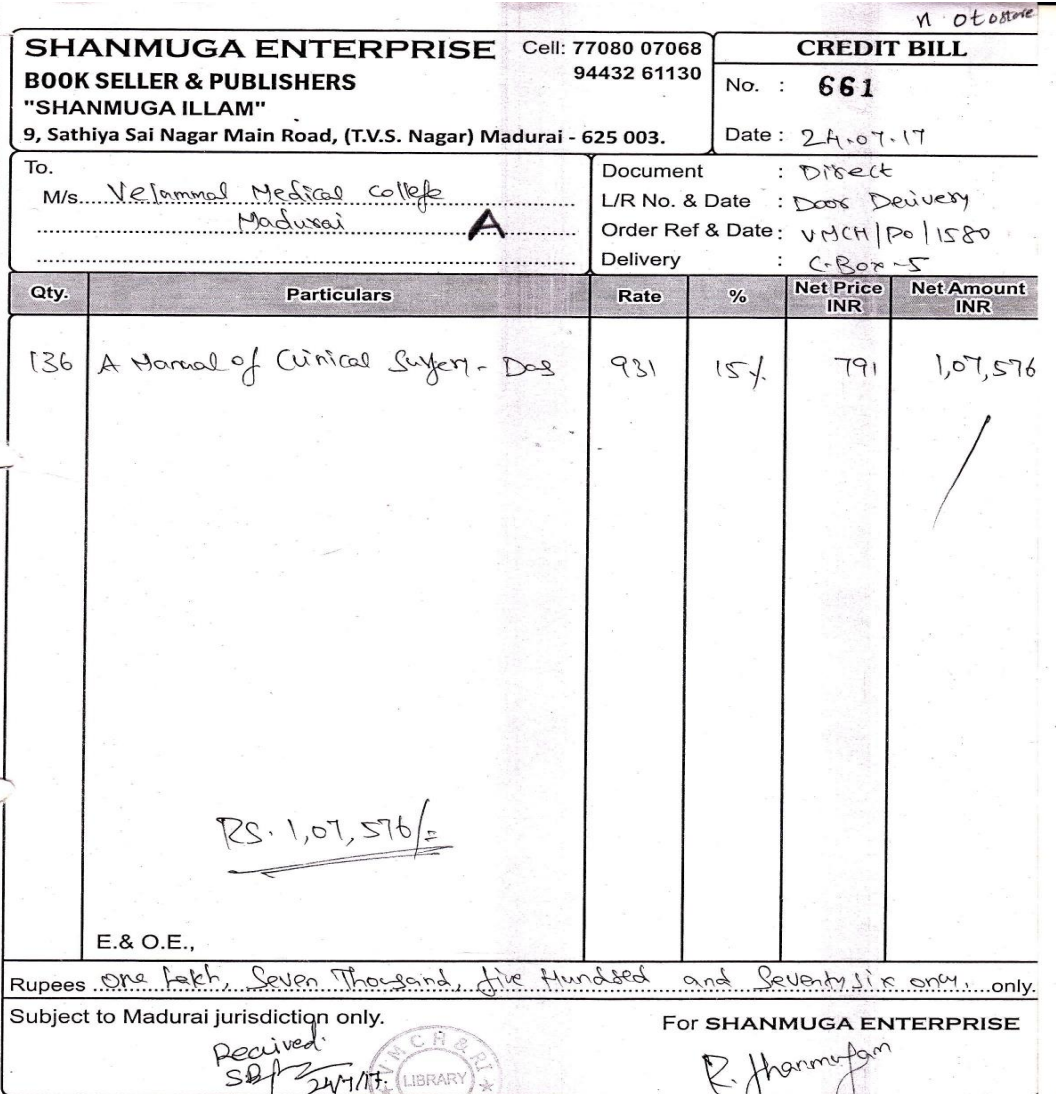 SHANMUGA ENTERPRISE Cell: 77080 07068
94432 61130
BOOK SELLER & PUBLISHERS
"SHANMUGA ILLAM"
9, Sathiya Sai Nagar Main Road, (T.V.S. Nagar) Madurai - 625 003.
CREDIT BILL
No. : 661
Date : 24.07.17
To.
M/s. Velammal Medical College
Madurai A
Document : Direct
L/R No. & Date : Door Delivery
Order Ref & Date : VMCH/PO/1580
Delivery : C.Box-5
Qty. Particulars Rate % Net Price INR Net Amount INR
136 A Manual of Clinical Surgery - Das 931 15% 791 1,07,576
RS. 1,07,576/=
E.& O.E.,
Rupees One Lakh, Seven Thousand, five Hundred and Seventy six only. only.
Subject to Madurai jurisdiction only.
For SHANMUGA ENTERPRISE
Received.
24/7/17.
VMCH & RI
LIBRARY
R. Shanmugam